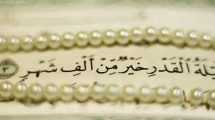 لَةُ ٱلْقَدْرِ خَيْرٌ مِّنْ أَلْفِ شَهْرٍ ٣